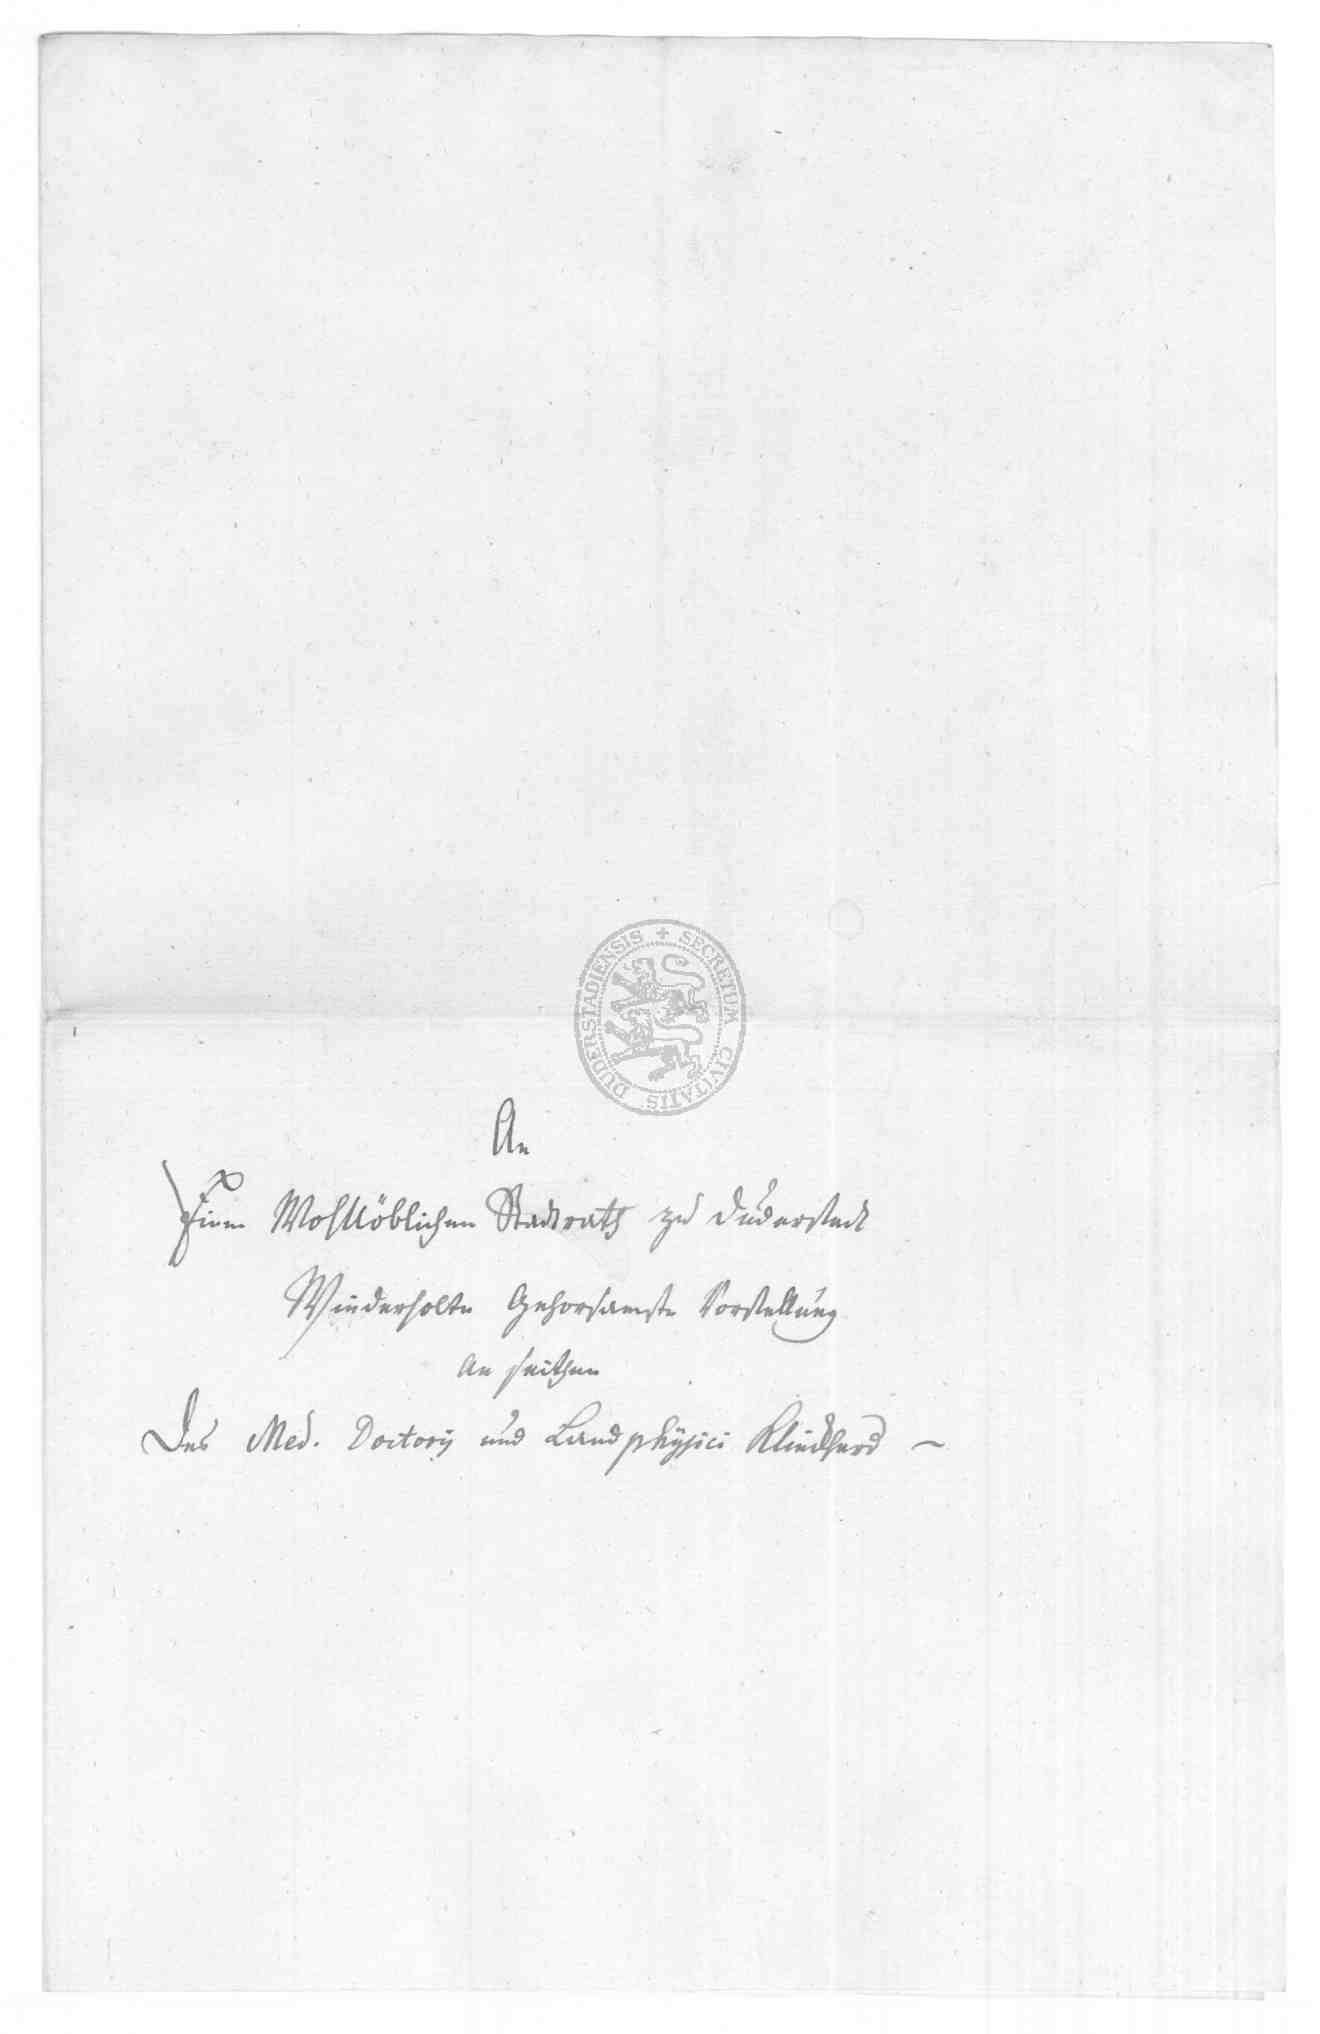 SECRETUM CIVITATIS DUDERSTADIENSIS
An
Einen Wohllöblichen Stadtrath zu Duderstadt
Wiederholte Gehorsamste Vorstellung
An seithen
Des Med. Doctoris und Landphysici